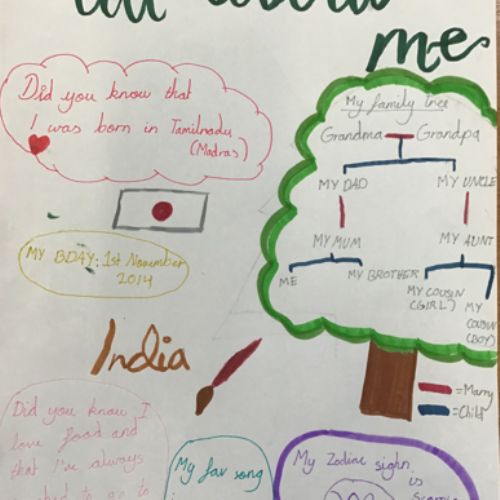 all about
me
Did you know that
I was born in Tamilnadu
(Madras)
MY BDAY: 1st November
2014
India
My family tree
Grandma Grandpa
MY DAD MY UNCLE
MY MUM MY AUNT
ME MY BROTHER MY COUSIN
(GIRL) MY
COUSIN
(BOY)
=Marry
=Child
Did you know I
love food and
that I've always
to go to
My fav song
My Zodiac sighn
is